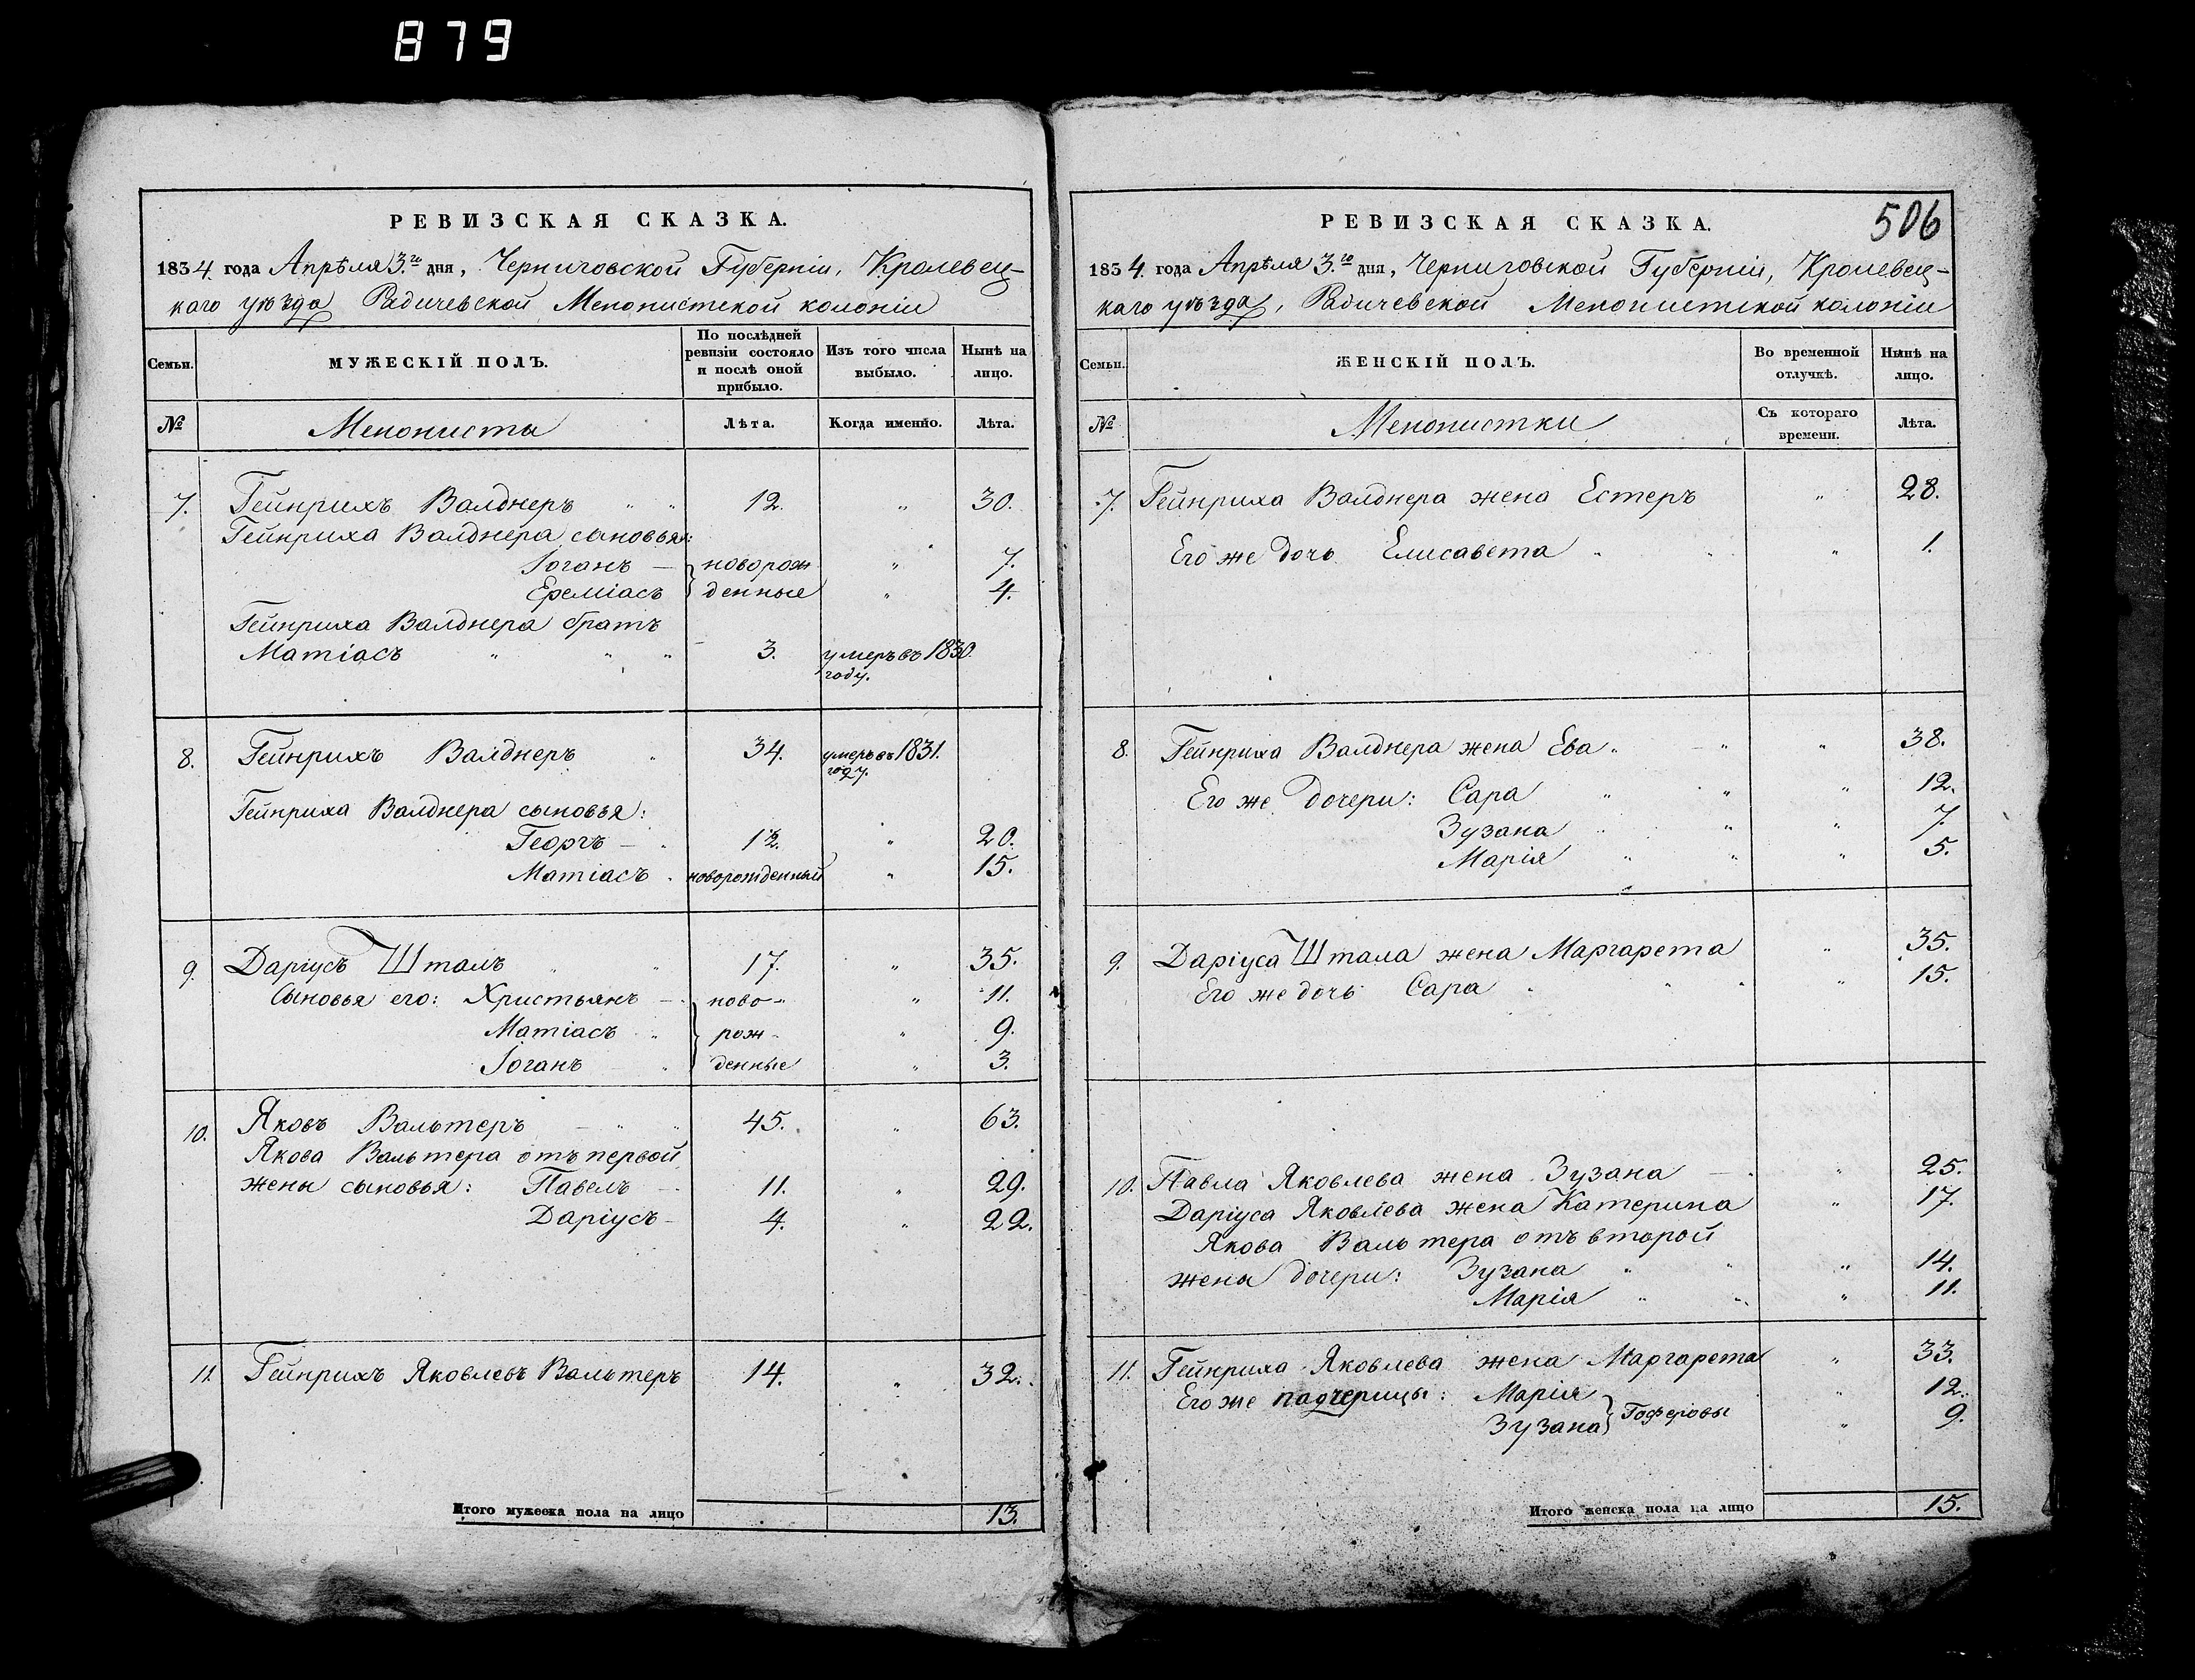 879
РЕВИЗСКАЯ СКАЗКА.
1834 года Апрѣля 3.го дня, Черниговской Губерніи, Кролевец-
каго уѣзда Радичевской Менонистской колоніи
Семьи.
МУЖЕСКІЙ ПОЛЪ.
По послѣдней ревизіи состояло и послѣ оной прибыло.
Изъ того числа выбыло.
Нынѣ на лицо.
№
Менонисты
Лѣта.
Когда именно.
Лѣта.
7. Гейнрихъ Валднеръ " " 12. " 30.
Гейнриха Валднера сыновья:
Іоганъ — новорож " 7.
Ереміасъ денные " 4.
Гейнриха Валднера братъ
Матіасъ " " " 3. умеръ въ 1830.
году.
8. Гейнрихъ Валднеръ " 34. умеръ въ 1831.
году.
Гейнриха Валднера сыновья:
Георгъ — " 12. " 20.
Матіасъ " новорожденный " 15.
9. Даріусъ Шталъ " " 17. " 35.
Сыновья его: Христьянъ — ново- " 11.
Матіасъ " рож- " 9.
Іоганъ — " денные " 3.
10. Яковъ Вальтеръ — " " 45. " 63.
Якова Вальтера отъ первой
жены сыновья: Павелъ — 11. " 29.
Даріусъ — 4. " 22.
11. Гейнрихъ Яковлевъ Вальтеръ 14. " 32.
Итого мужеска пола на лицо 13.
506
РЕВИЗСКАЯ СКАЗКА.
1834. года Апрѣля 3.го дня, Черниговской Губерніи, Кролевец-
каго уѣзда, Радичевской Менонистской колоніи
Семьи.
ЖЕНСКІЙ ПОЛЪ.
Во временной отлучкѣ.
Нынѣ на лицо.
№
Менонистки
Съ котораго времени.
Лѣта.
7. Гейнриха Валднера жена Естеръ " 28.
Его же дочь Елисавета " " " 1.
8. Гейнриха Валднера жена Ева " — " " 38.
Его же дочери: Сара " " " 12.
Зузана " " " 7.
Марія " " " 5.
9. Даріуса Штала жена Маргарета " 35.
Его же дочь Сара " " " " 15.
10. Павла Яковлева жена Зузана — " " 25.
Даріуса Яковлева жена Катерина " 17.
Якова Вальтера отъ второй
жены дочери: Зузана " " " 14.
Марія " " " 11.
11. Гейнриха Яковлева жена Маргарета " 33.
Его же падчерицы: Марія " 12.
Зузана Гоферовы " 9.
Итого женска пола на лицо 15.